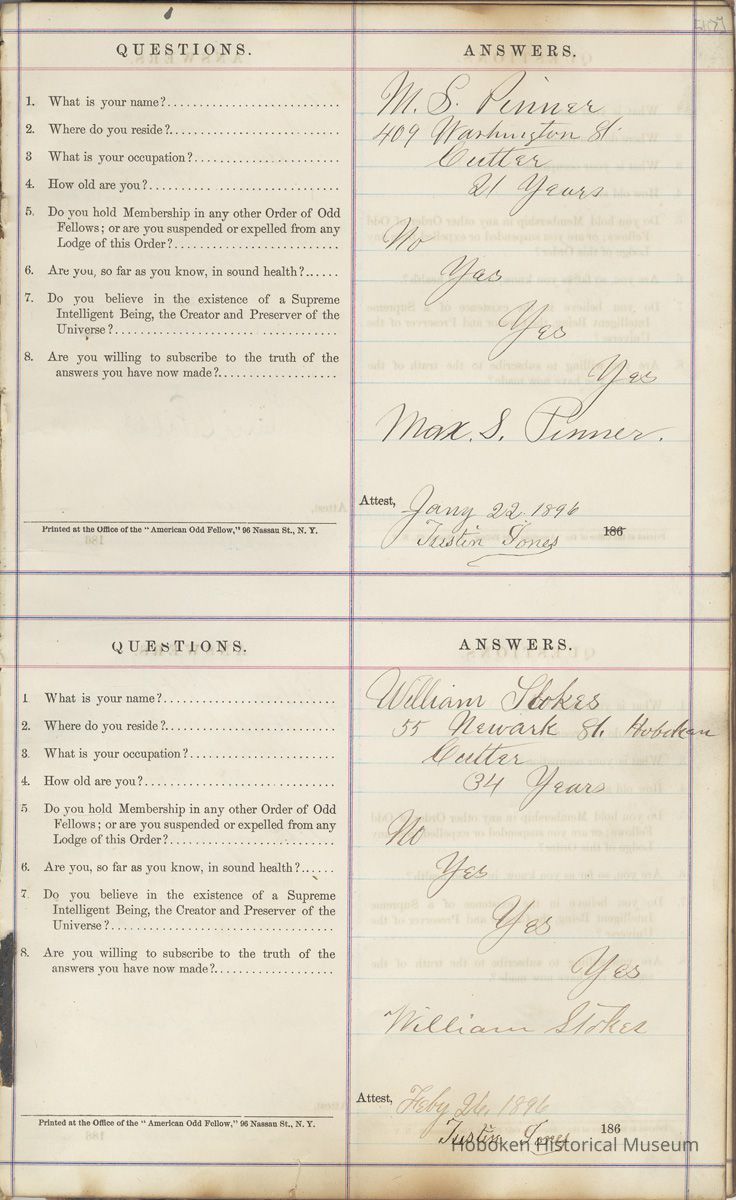 QUESTIONS. ANSWERS.
1. What is your name? M. S. Pinner
2. Where do you reside? 409 Washington St.
3 What is your occupation? Cutter
4. How old are you? 21 Years
5. Do you hold Membership in any other Order of Odd
Fellows; or are you suspended or expelled from any
Lodge of this Order? No
6. Are you, so far as you know, in sound health? Yes
7. Do you believe in the existence of a Supreme
Intelligent Being, the Creator and Preserver of the
Universe? Yes
8. Are you willing to subscribe to the truth of the
answers you have now made? Yes
Max. S. Pinner.
Attest, Jany 22. 1896
Printed at the Office of the "American Odd Fellow," 96 Nassau St., N. Y. Justin Jones 186
QUESTIONS. ANSWERS.
1 What is your name? William Stokes
2. Where do you reside? 55 Newark St. Hoboken
3. What is your occupation? Cutter
4. How old are you? 34 Years
5. Do you hold Membership in any other Order of Odd
Fellows; or are you suspended or expelled from any
Lodge of this Order? No
6. Are you, so far as you know, in sound health? Yes
7. Do you believe in the existence of a Supreme
Intelligent Being, the Creator and Preserver of the
Universe? Yes
8. Are you willing to subscribe to the truth of the
answers you have now made? Yes
William Stokes
Attest, Feby 26, 1896
Printed at the Office of the "American Odd Fellow," 96 Nassau St., N. Y. Justin Jones 186
Hoboken Historical Museum